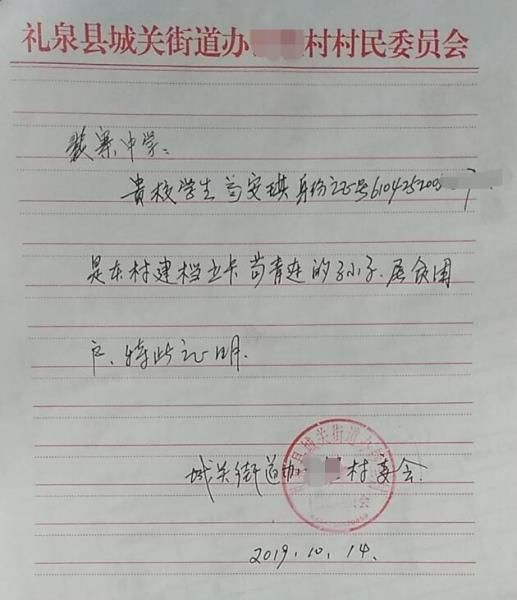 礼泉县城关街道办 村村民委员会
裴寨中学:
贵校学生苟安琪身份证号610425200
是东村建档立卡苟青连的孙子.居贫困
户、特此证明.
城关街道办 村委会.
2019.10.14.